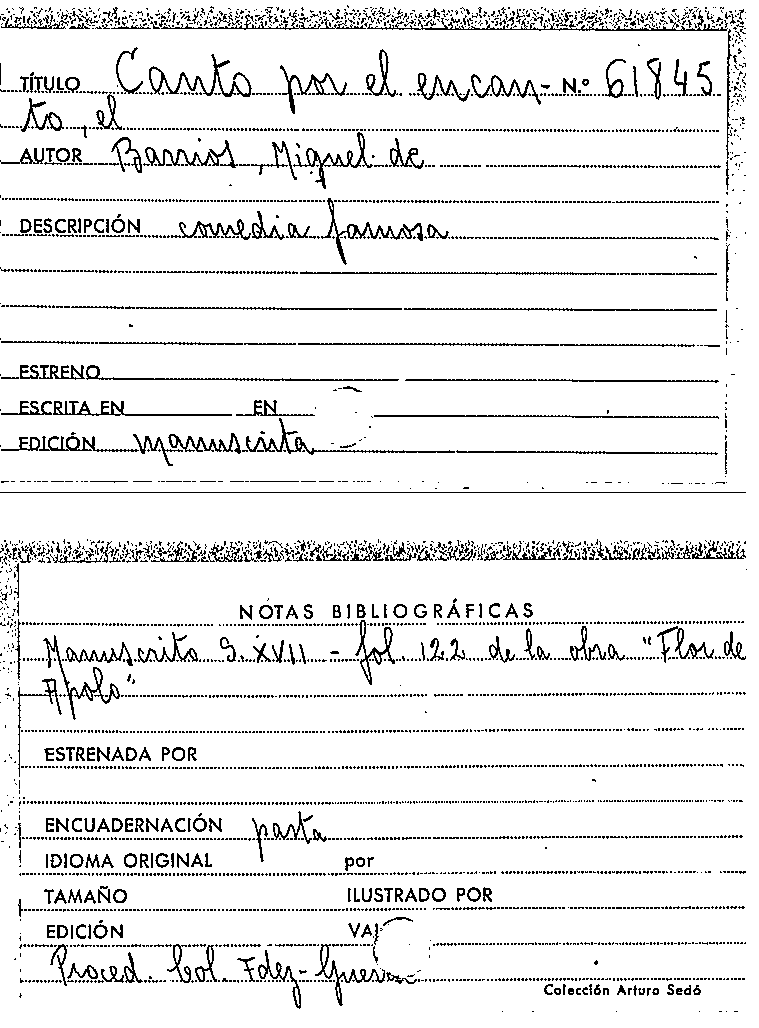 TÍTULO Canto por el encan- N.º 61845
to, el
AUTOR Barrios, Miguel de
DESCRIPCIÓN comedia famosa
ESTRENO
ESCRITA EN EN
EDICIÓN manuscrita
NOTAS BIBLIOGRÁFICAS
Manuscrito S. XVII - fol. 122 de la obra "Flor de
Apolo"
ESTRENADA POR
ENCUADERNACIÓN pasta
IDIOMA ORIGINAL por
TAMAÑO ILUSTRADO POR
EDICIÓN
Proced. Col. Fdez-
Colección Arturo Sedó